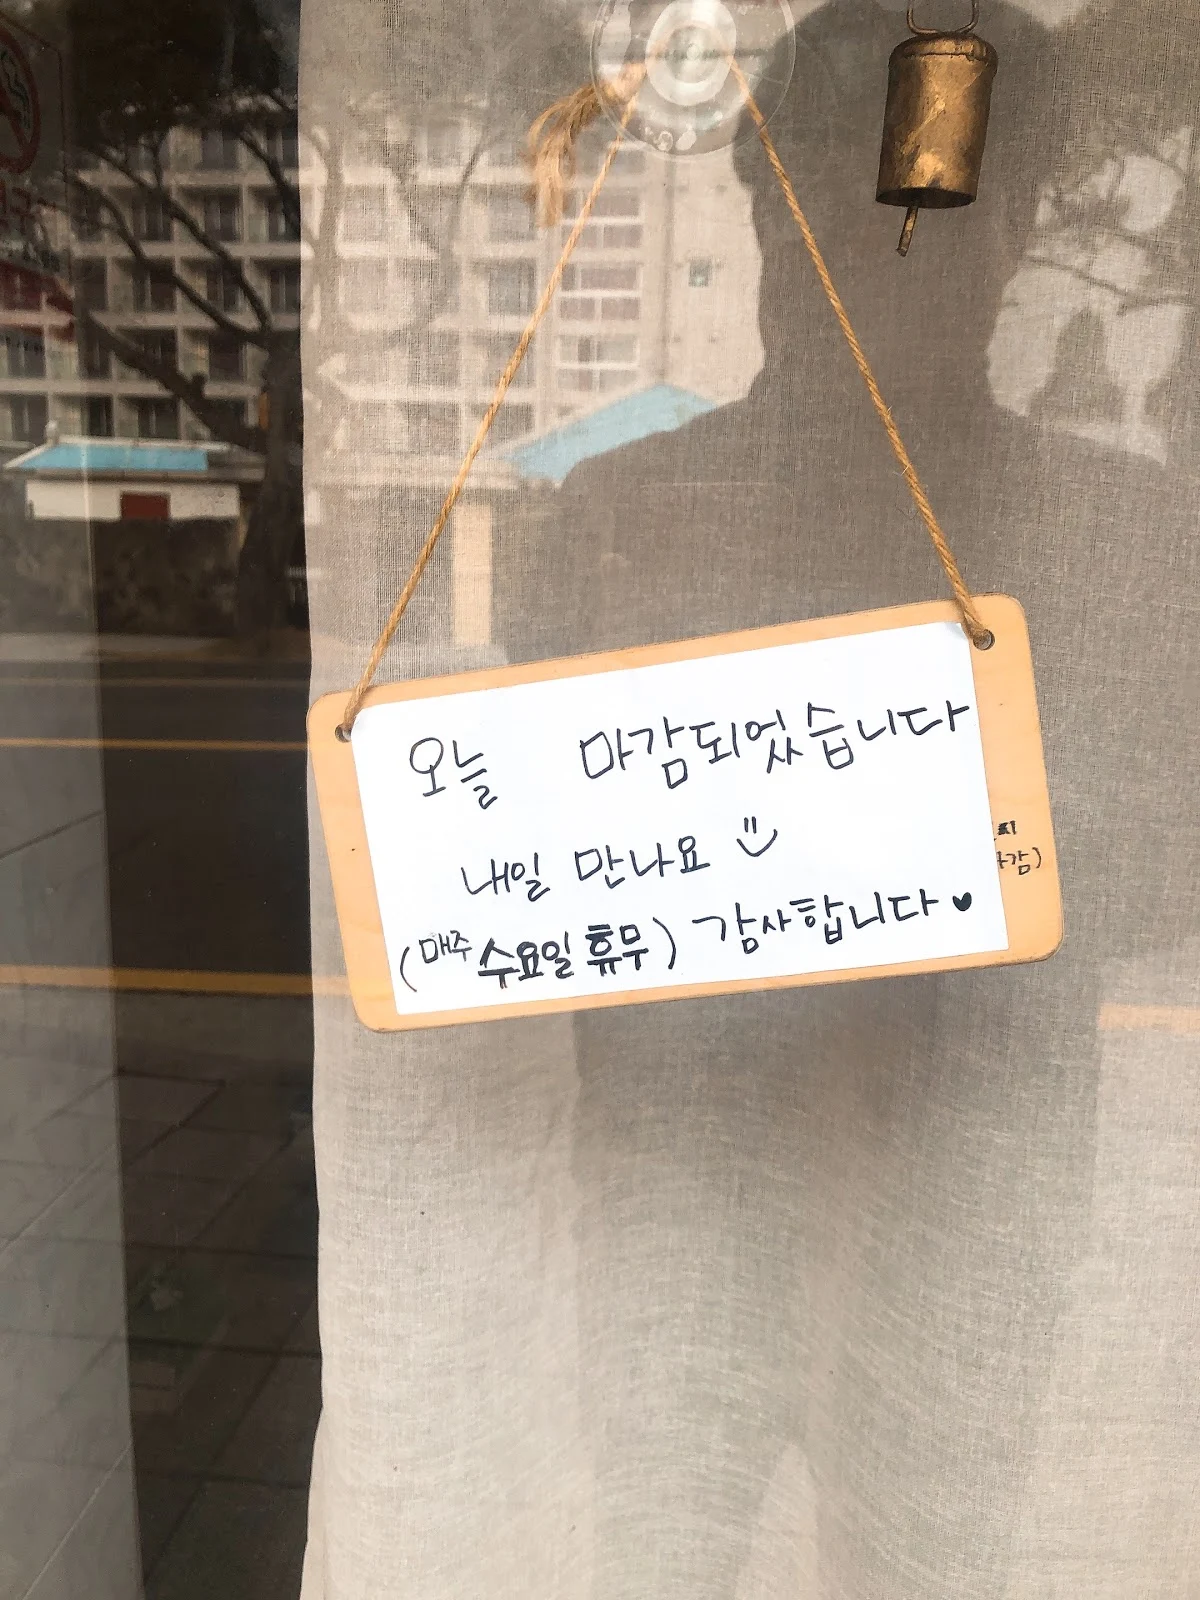 오늘 마감되었습니다
내일 만나요
(매주 수요일 휴무) 감사합니다 ♥
감)